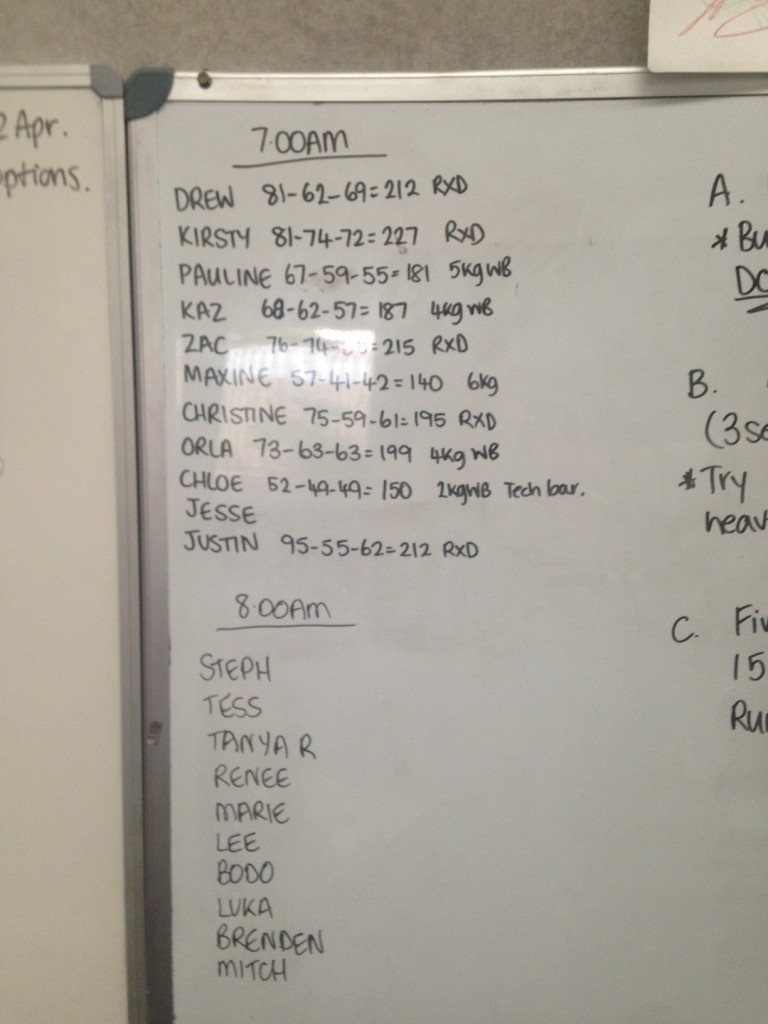 2 Apr.
ptions.
7.00AM
DREW 81-62-69=212 RXD
KIRSTY 81-74-72=227 RXD
PAULINE 67-59-55=181 5kgWB
KAZ 68-62-57=187 4kgWB
ZAC 76-74- =215 RXD
MAXINE 57-41-42=140 6kg
CHRISTINE 75-59-61=195 RXD
ORLA 73-63-63=199 4kg WB
CHLOE 52-49-49=150 2kgWB Tech bar.
JESSE
JUSTIN 95-55-62=212 RXD
8.00AM
STEPH
TESS
TANYA R
RENEE
MARIE
LEE
BODO
LUKA
BRENDEN
MITCH
A.
* Bu
DO
B.
(3se
* Try
heav
C. Fiv
15
Run